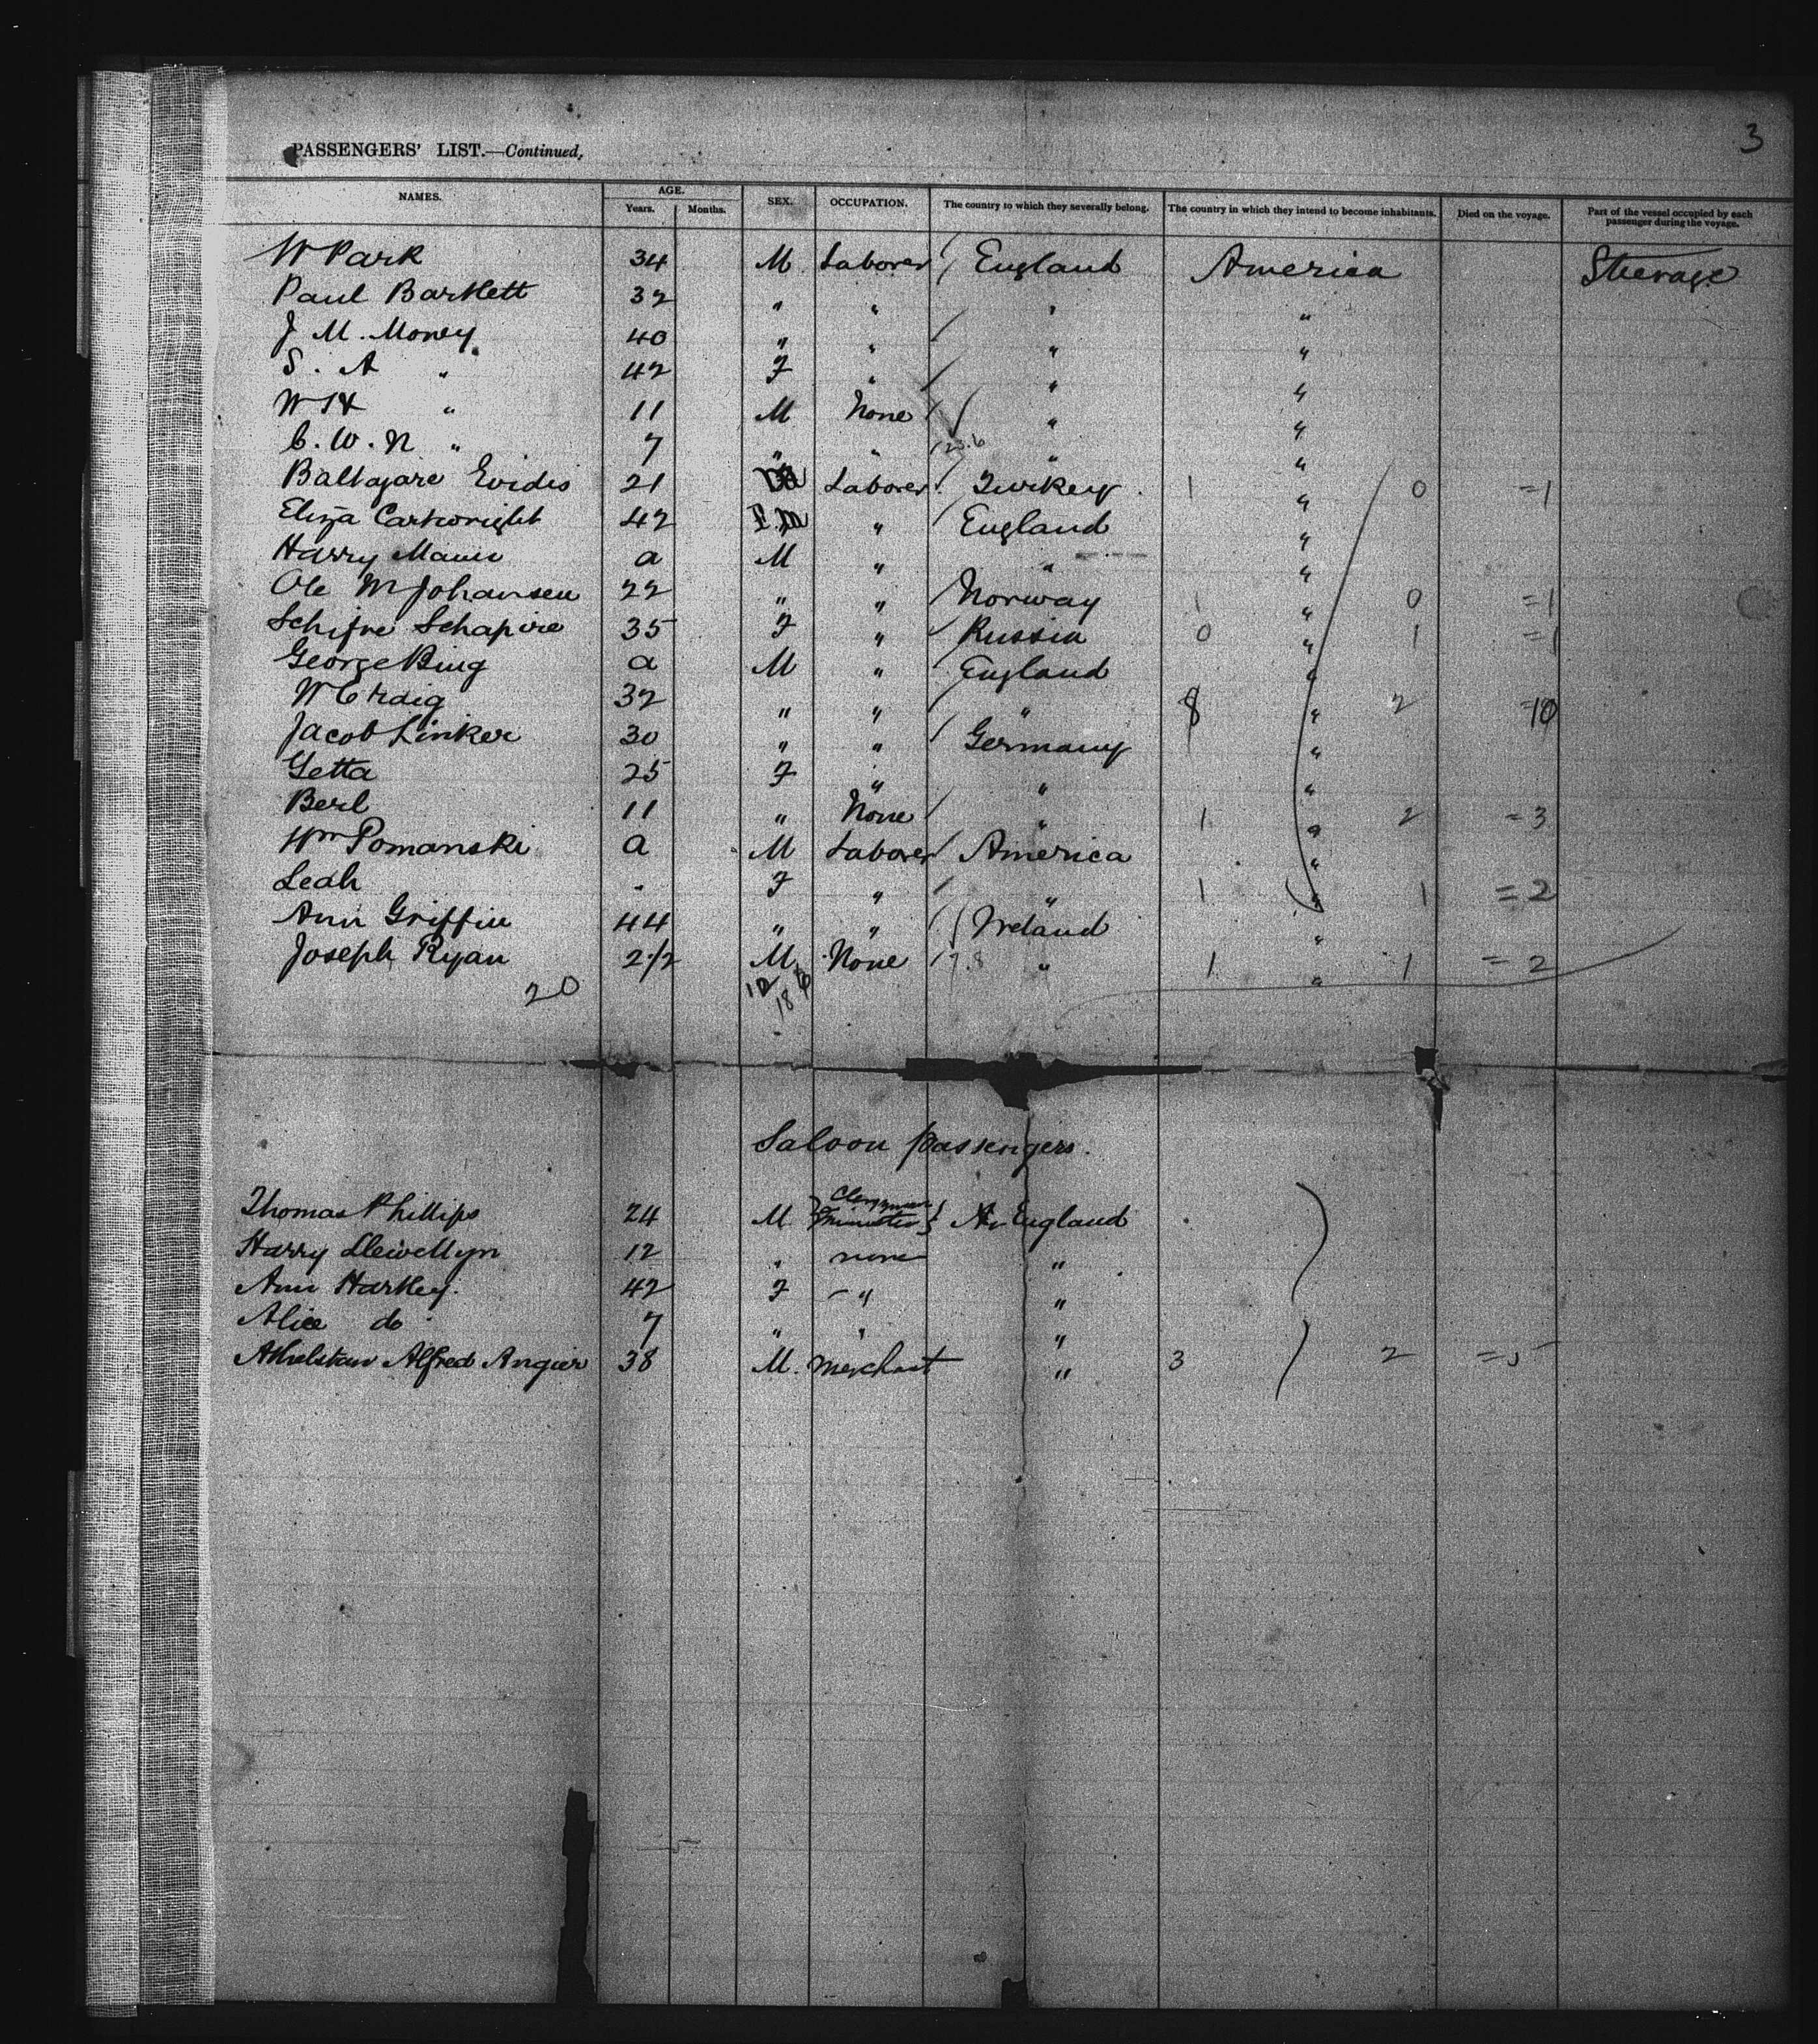 3
PASSENGERS' LIST.—Continued,
NAMES. AGE. Years. Months. SEX. OCCUPATION. The country to which they severally belong. The country in which they intend to become inhabitants. Died on the voyage. Part of the vessel occupied by each passenger during the voyage.
W Park 34 M Laborer England America Steerage
Paul Bartlett 32 " " " "
J M. Money 40 " " " "
S. A " 42 F " " "
W H " 11 M None " "
C. W. N " 7 " " " "
Baltajare Evidis 21 Laborer Turkey 1 " 0 =1
Eliza Cartwright 42 " England "
Harry Mann a M " " "
Ole M Johansen 22 " " Norway 1 " 0 =1
Schifre Schapire 35 F " Russia 0 " 1 =1
George King a M " England "
W Craig 32 " " " 8 " 2 =10
Jacob Linker 30 " " Germany "
Getta 25 F " " "
Berl 11 " None " 1 " 2 =3
Wm Pomanski a M Laborer America "
Leah " F " " 1 " 1 =2
Ann Griffin 44 " " Ireland "
Joseph Ryan 2 1/2 M None 7.8 " 1 " 1 =2
20 12
18
Saloon passengers.
Thomas Phillips 24 M Clergyman minister England
Harry Llewellyn 12 " none "
Ann Hartley 42 F " "
Alice do 7 " " "
Athelstan Alfred Angier 38 M. merchant " 3 2 =5